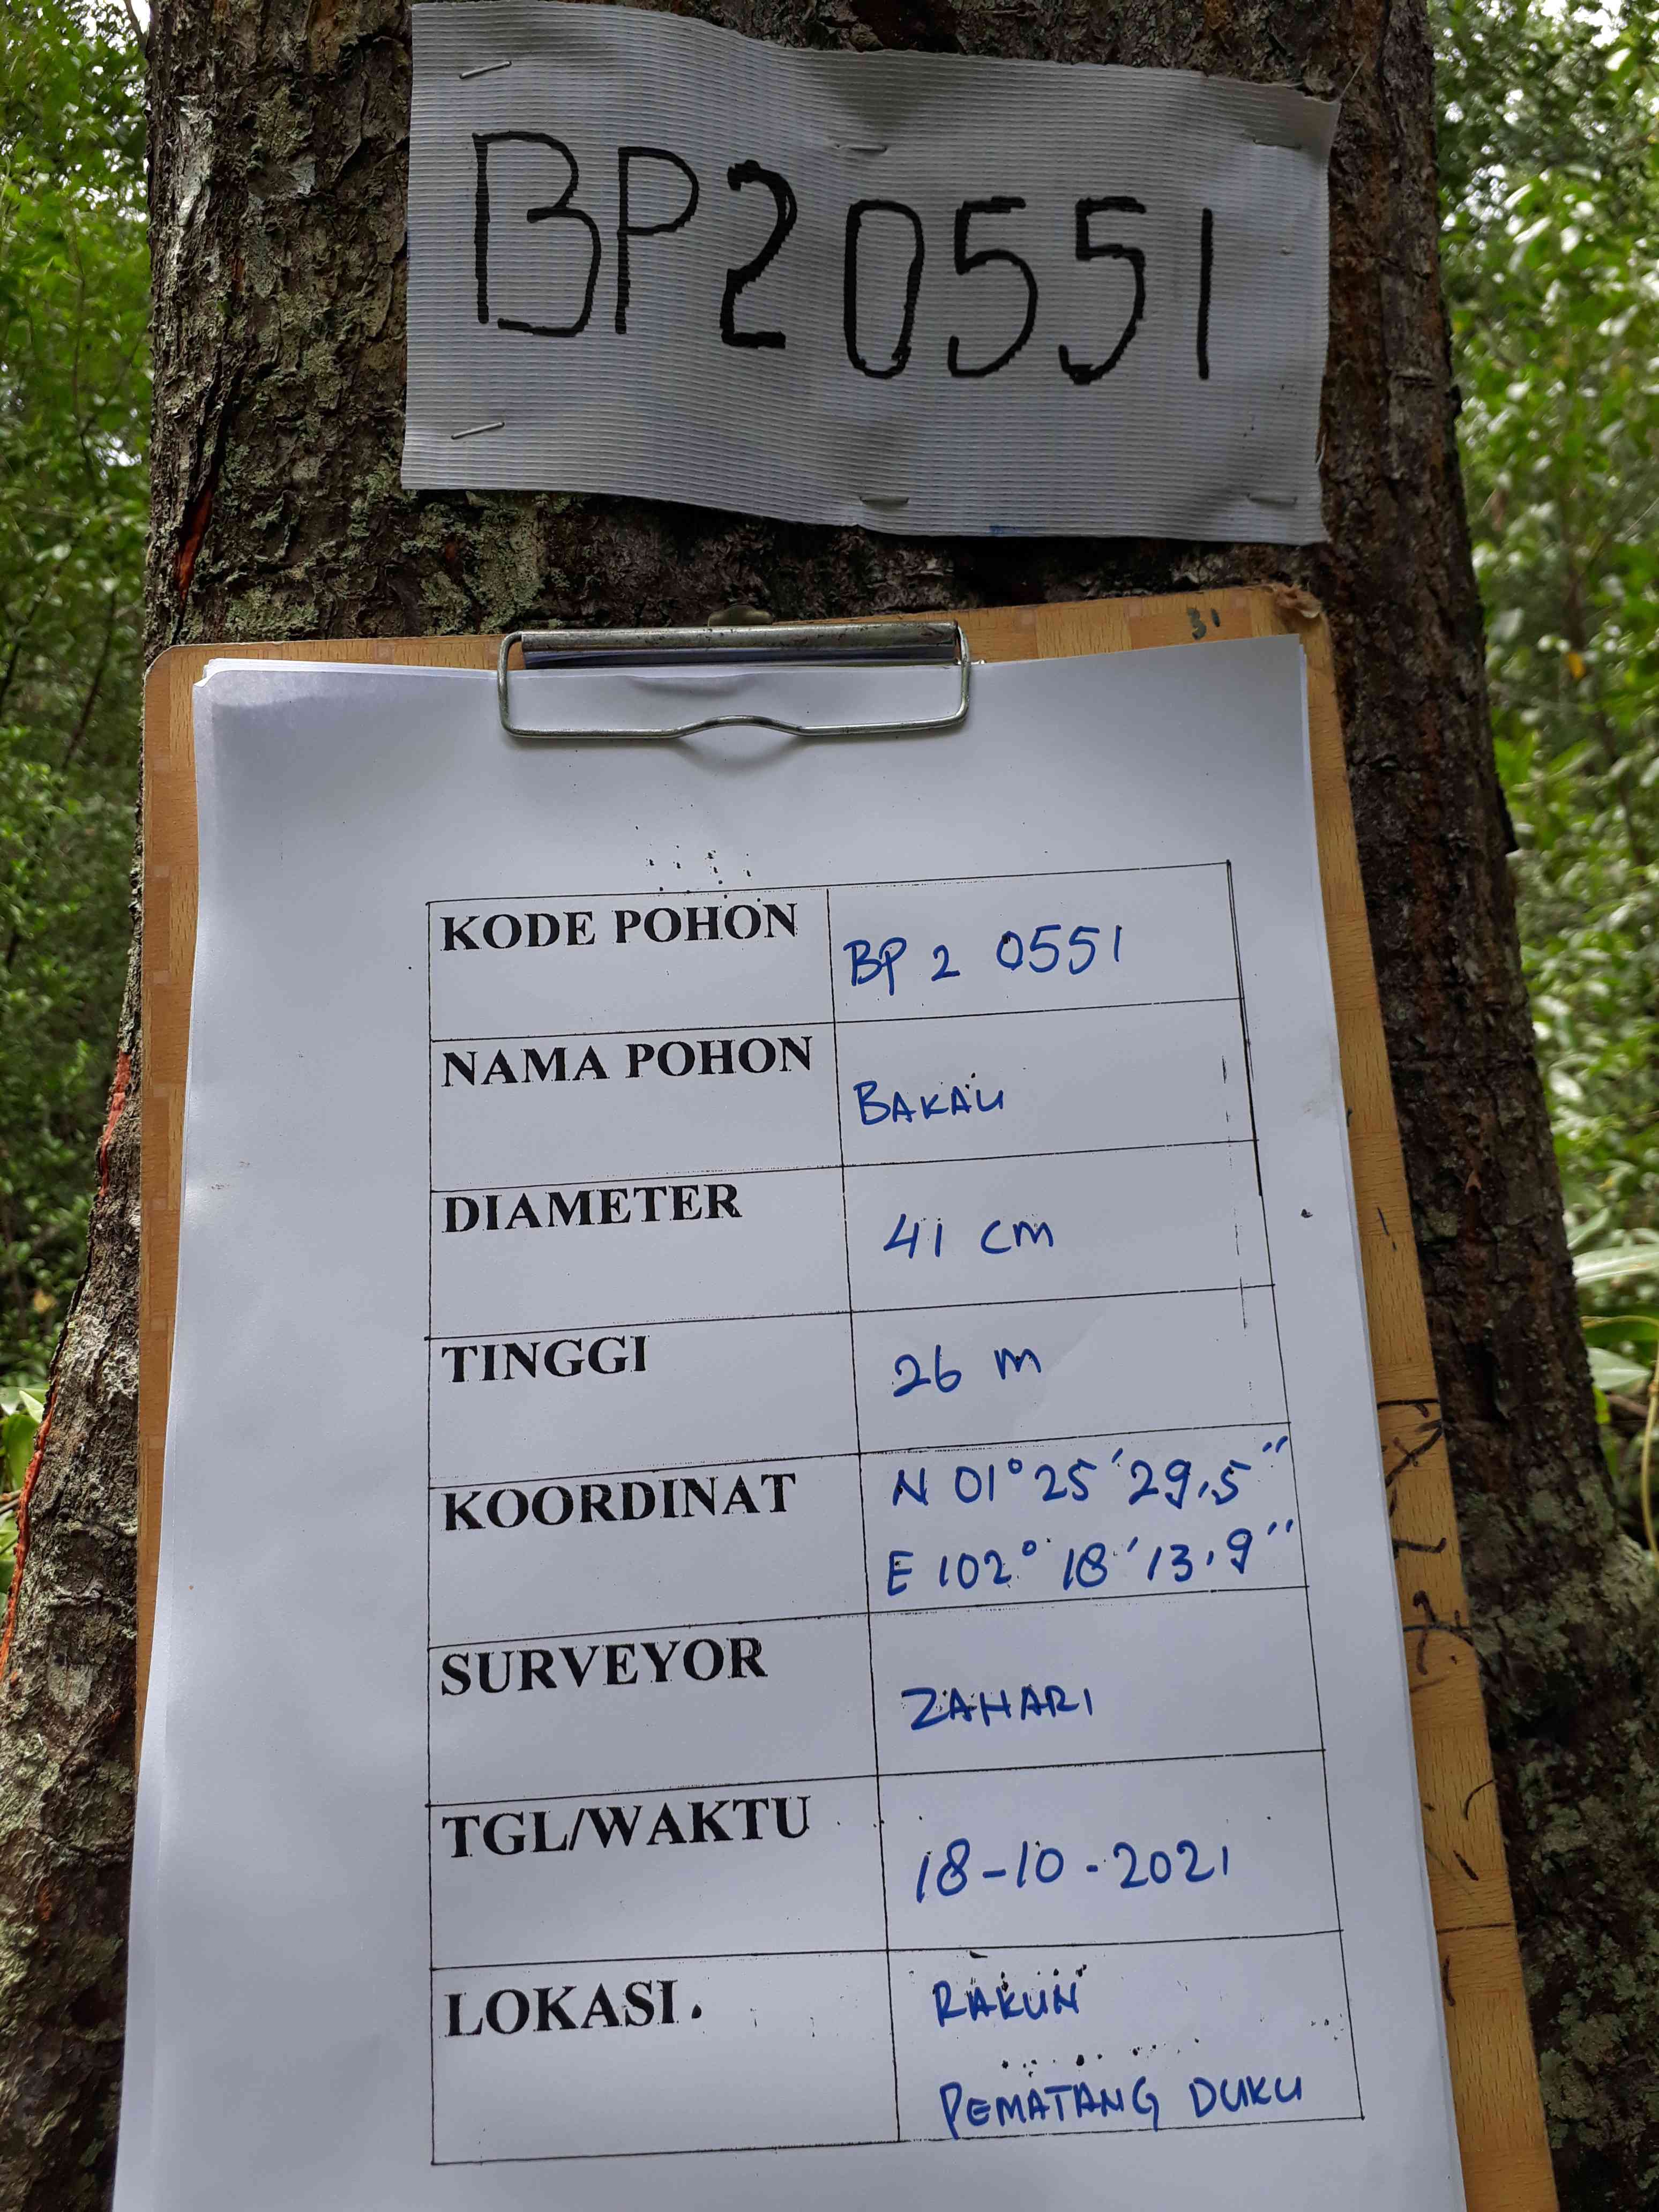 BP20551
31
KODE POHON BP 2 0551
NAMA POHON BAKAU
DIAMETER 41 cm
TINGGI 26 m
KOORDINAT N 01° 25' 29,5"
E 102° 18' 13.9"
SURVEYOR ZAHARI
TGL/WAKTU 18-10-2021
LOKASI. RAKUN
PEMATANG DUKU